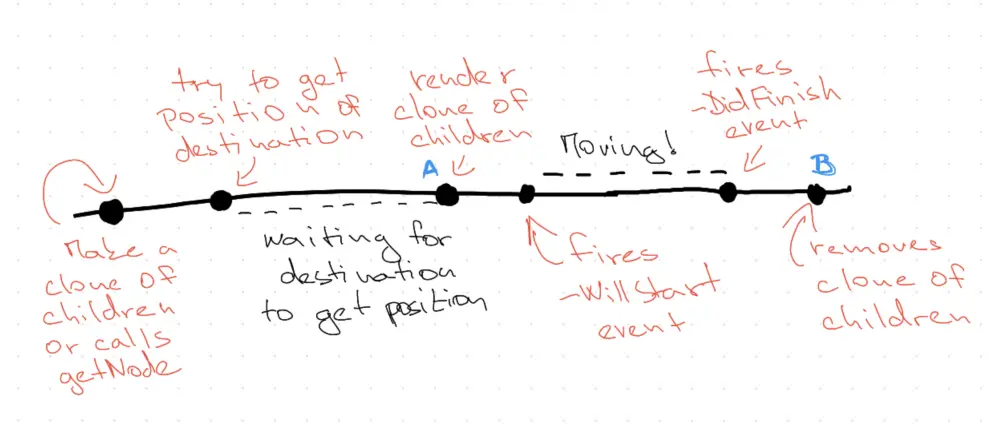 try to get
position of
destination
render
clone of
children
fires
-DidFinish
event
Moving!
A
B
Make a
clone of
children
or calls
getNode
waiting for
destination
to get position
fires
-WillStart
event
removes
clone of
children